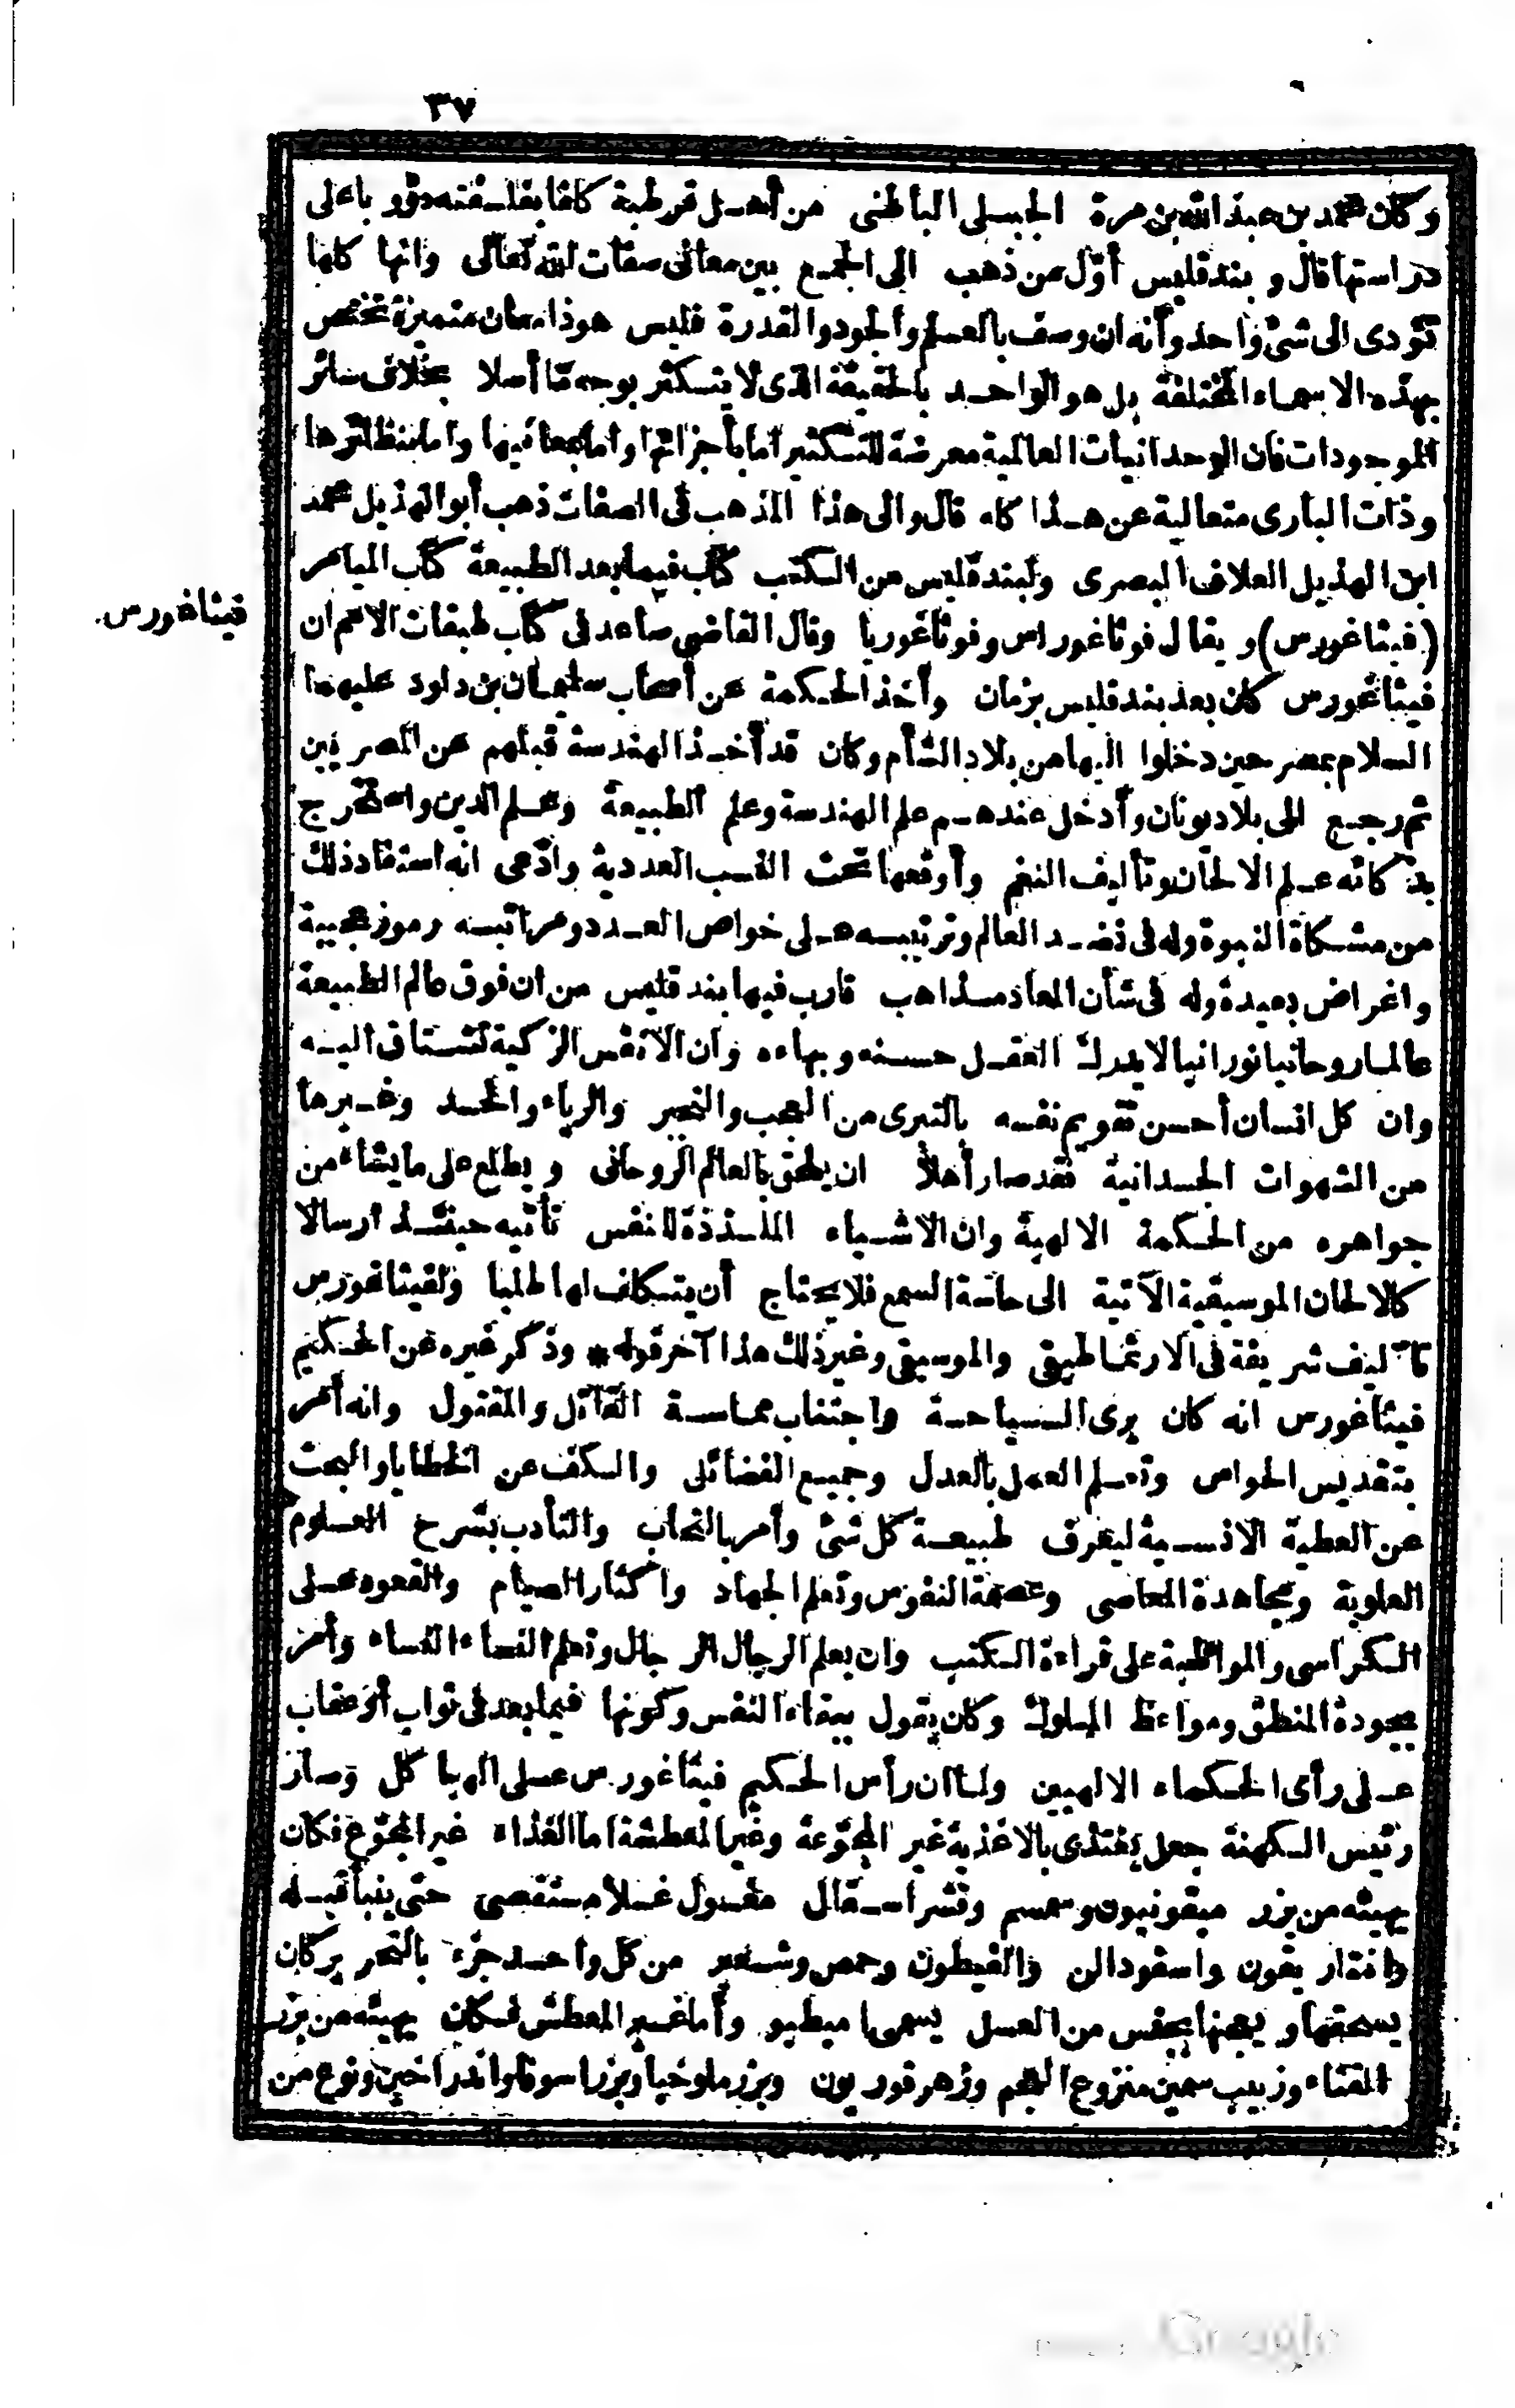 ٣٧
وكان محمد بن عبد الله بن مرة الجبلى الباطنى من أهل قرطبة كلفا بفلسفته دؤوبا على
دراستها قال و بندقليس أول من ذهب الى الجمع بين معانى صفات الله تعالى وانها كلها
تؤدى الى شئ واحد وأنه ان وصف بالعلم والجود والقدرة فليس هو ذا معان متميزة تختص
بهذه الاسماء المختلفة بل هو الواحد بالحقيقة الذى لا يتكثر بوجه ما أصلا بخلاف سائر
الموجودات فان الوحدانيات العالمية معرضة للتكثير اما بأجزائها واما بمعانيها واما بنظائرها
وذات البارى متعالية عن هذا كله قال والى هذا المذهب فى الصفات ذهب أبو الهذيل محمد
ابن الهذيل العلاف البصرى ولبندقليس من الكتب كتاب فيما بعد الطبيعة كتاب الميامر
فيثاغورس
(فيثاغورس) ويقال فوثاغوراس وفوثاغوريا وقال القاضى صاعد فى كتاب طبقات الامم ان
فيثاغورس كان بعد بندقليس بزمان وأخذ الحكمة عن أصحاب سليمان بن داود عليهما
السلام بمصر حين دخلوا اليها من بلاد الشأم وكان قد أخذ الهندسة قبلهم عن المصريين
ثم رجع الى بلاد يونان وأدخل عندهم علم الهندسة وعلم الطبيعة وعلم الدين واستخرج
بذكائه علم الالحان وتأليف النغم وأوقعها تحت النسب العددية وادّعى انه استفاد ذلك
من مشكاة النبوة وله فى نضد العالم وترتيبه على خواص العدد ومراتبه رموز عجيبة
واغراض بعيدة وله فى شأن المعاد مذاهب قارب فيها بندقليس من ان فوق عالم الطبيعة
عالما روحانيا نورانيا لا يدرك العقل حسنه وبهاءه وان الانفس الزكية تشتاق اليه
وان كل انسان أحسن تقويم نفسه بالتبرى من العجب والتجبر والرياء والحسد وغيرها
من الشهوات الجسدانية فقد صار أهلا ان يلحق بالعالم الروحانى ويطلع على ما يشاء من
جواهره من الحكمة الالهية وان الاشياء الملذذة للنفس تأتيه حينئذ ارسالا
كالالحان الموسيقية الآتية الى حاسة السمع فلا يحتاج أن يتكلف لها طلبا ولفيثاغورس
تآليف شريفة فى الارثماطيقى والموسيقى وغير ذلك هذا آخر قوله * وذكر غيره عن الحكيم
فيثاغورس انه كان يرى السياحة واجتناب مماسة القاتل والمقتول وانه أمر
بتقديس الحواس وتعلم العمل بالعدل وجميع الفضائل والكف عن الخطايا والبحث
عن العطية الانسية ليعرف طبيعة كل شئ وأمر بالتحاب والتأدب بشرح العلوم
العلوية ومجاهدة المعاصى وعصمة النفوس وتعلم الجهاد واكثار الصيام والقعود على
الكراسى والمواظبة على قراءة الكتب وان يعلم الرجال الرجال وتعلم النساء النساء وأمر
بجودة المنطق ومواعظ الملوك وكان يقول ببقاء النفس وكونها فيما بعد فى ثواب أو عقاب
على رأى الحكماء الالهيين ولما ان رأس الحكيم فيثاغورس على الهياكل وصار
رئيس الكهنة جعل يغتذى بالاغذية غير المجوّعة وغير المعطشة اما الغذاء غير المجوّع فكان
يهيئه من بزر ميقونيون وسمسم وقشر اسقال مغسول غسلا مستقصى حتى ينبأ قبله
وانثاريقون واسفودالن والفيطون وحمص وشعير من كل واحد جزء بالتحرير كان
يسحقها ويعجنها بجنس من العسل يسمى اميطيو وأما غير المعطش فكان يهيئه من بزر
القثاء وزبيب سمين منزوع العجم وزهر قوريون وبزر ملوخيا وبزر اسوفا واندراخين ونوع من